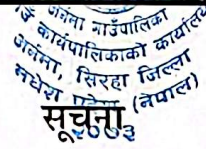 अर्नमा गाउँपालिका
गाउँ कार्यपालिकाको कार्यालय
अर्नमा, सिरहा जिल्ला
मधेश प्रदेश (नेपाल)
२०७३
सूचना